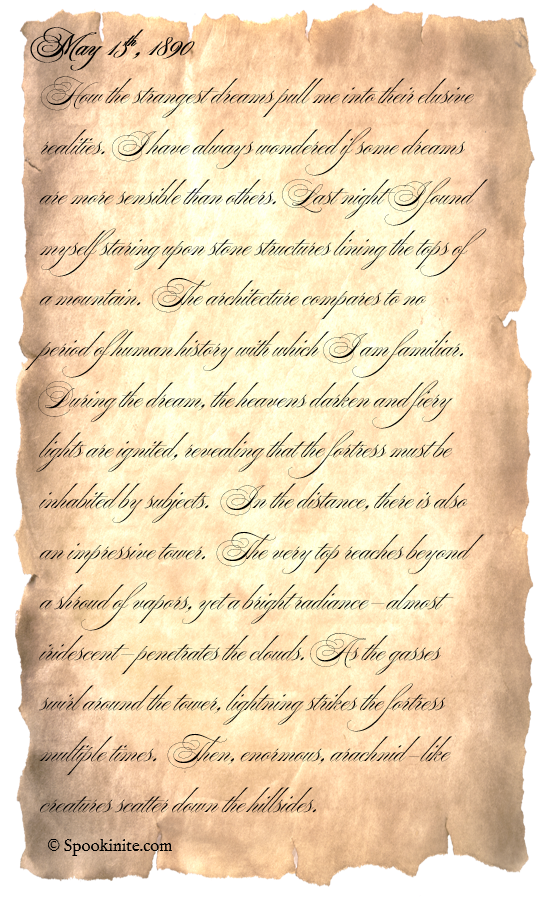 May 13th, 1890
How the strangest dreams pull me into their elusive
realities. I have always wondered if some dreams
are more sensible than others. Last night I found
myself staring upon stone structures lining the tops of
a mountain. The architecture compares to no
period of human history with which I am familiar.
During the dream, the heavens darken and fiery
lights are ignited, revealing that the fortress must be
inhabited by subjects. In the distance, there is also
an impressive tower. The very top reaches beyond
a shroud of vapors, yet a bright radiance – almost
iridescent – penetrates the clouds. As the gasses
swirl around the tower, lightning strikes the fortress
multiple times. Then, enormous, arachnid-like
creatures scatter down the hillsides.
© Spookinite.com